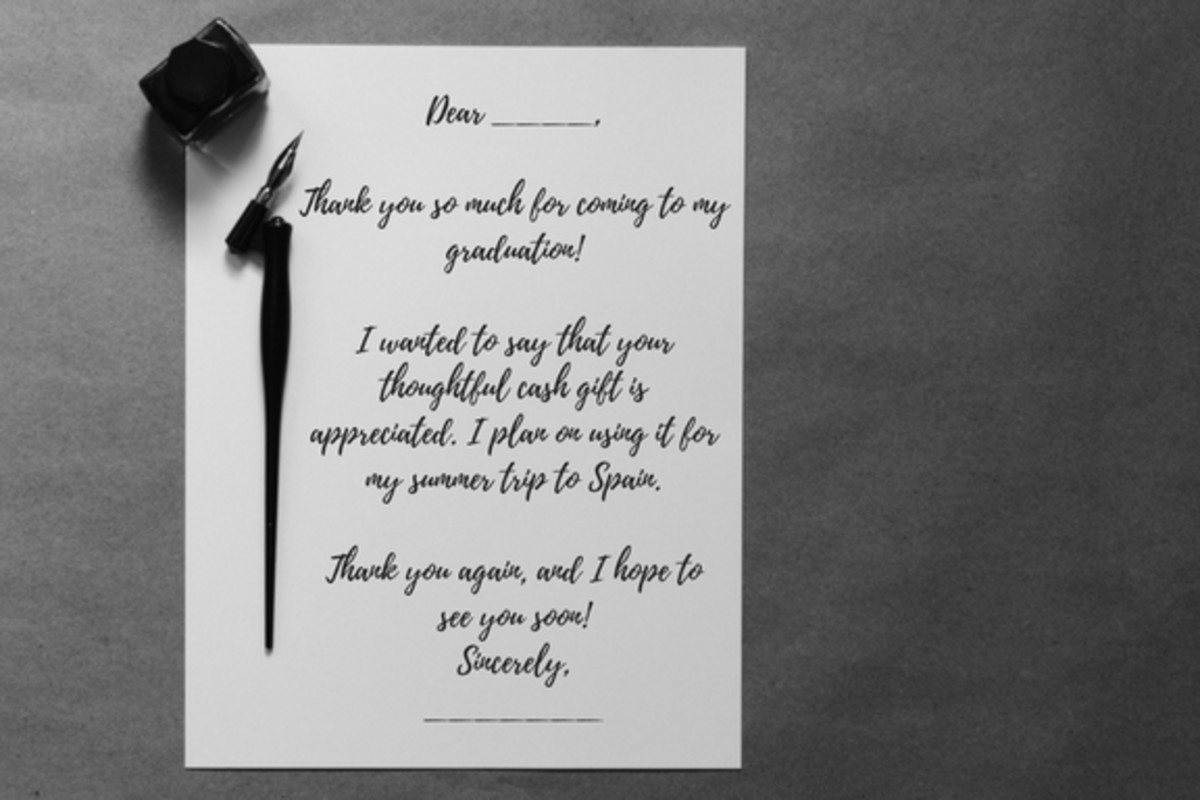 Dear ______,
Thank you so much for coming to my
graduation!
I wanted to say that your
thoughtful cash gift is
appreciated. I plan on using it for
my summer trip to Spain.
Thank you again, and I hope to
see you soon!
Sincerely,
__________